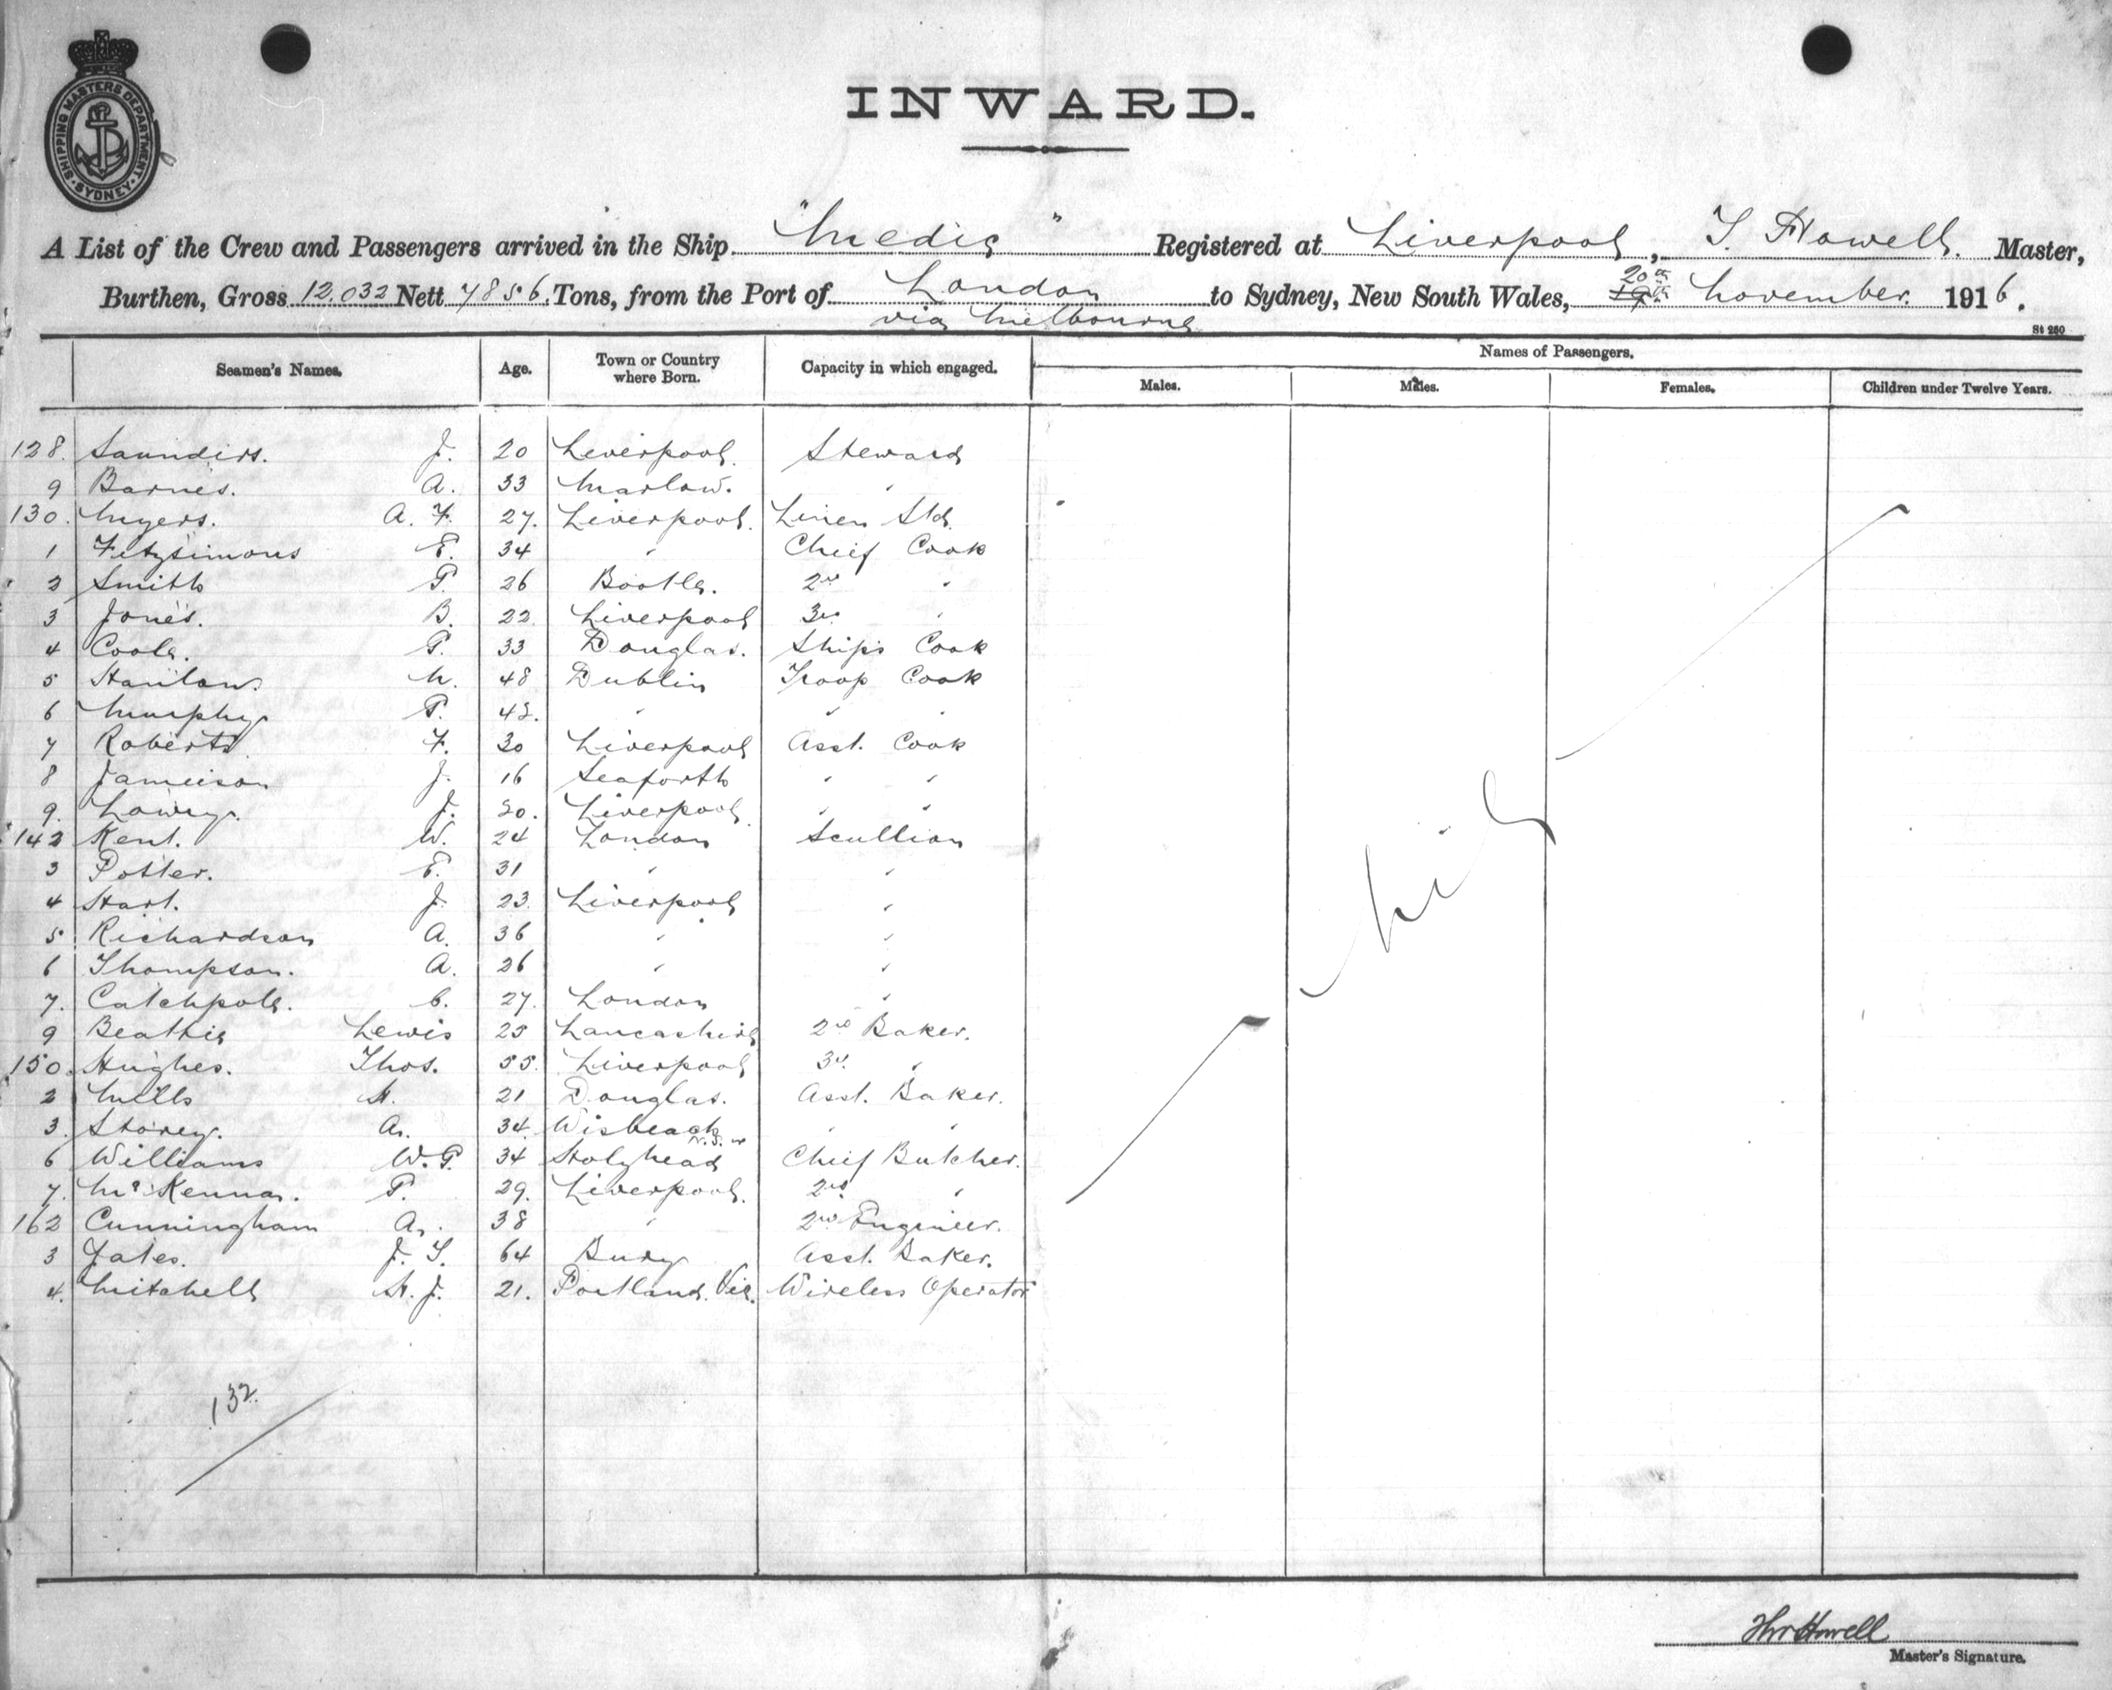 SHIPPING MASTERS DEPARTMENT
SYDNEY
INWARD.
A List of the Crew and Passengers arrived in the Ship "Medic" Registered at Liverpool, T. Howell. Master,
20th
Burthen, Gross 12,032 Nett 7856 Tons, from the Port of London to Sydney, New South Wales, 19th November. 1916.
via Melbourne
St 280
Seamen's Names. Age. Town or Country where Born. Capacity in which engaged. Names of Passengers.
Males. Males. Females. Children under Twelve Years.
128. Saunders. J. 20 Liverpool. Steward
9 Barnes. A. 33 Marlow. "
130. Myers. A. F. 27. Liverpool. Linen Std.
1 Fitzsimons E. 34 " Chief Cook
2 Smith P. 26 Bootle. 2nd "
3 Jones. B. 22 Liverpool 3rd "
4 Coole. P. 33 Douglas. Ships Cook
5 Hanlon. M. 48 Dublin Troop Cook
6 Murphy P. 42. " " "
7 Roberts F. 30 Liverpool Asst. Cook
8 Jamieson J. 16 Seaforth " "
9. Lowry. J. 20. Liverpool " "
142 Kent. W. 24 London Scullion
3 Potter. E. 31 " "
4 Hart. J. 23. Liverpool "
5 Richardson A. 36 " "
6 Thompson. A. 26 " "
7. Catchpole. C. 27. London "
9 Beattie Lewis 25 Lancashire 2nd Baker.
150. Hughes. Thos. 55. Liverpool 3rd "
2 Mills H. 21 Douglas. Asst. Baker.
3. Storey. A. 34. Wisbeach " "
6 Williams W. P. 34 Holyhead Chief Butcher.
7. McKenna. P. 29. Liverpool. 2nd "
162 Cunningham A. 38 " 2nd Engineer.
3 Yates. J. T. 64 Bury Asst. Baker.
4. Mitchell H. J. 21. Portland. Vic. Wireless Operator
Nil
132.
Thos Howell
Master's Signature.